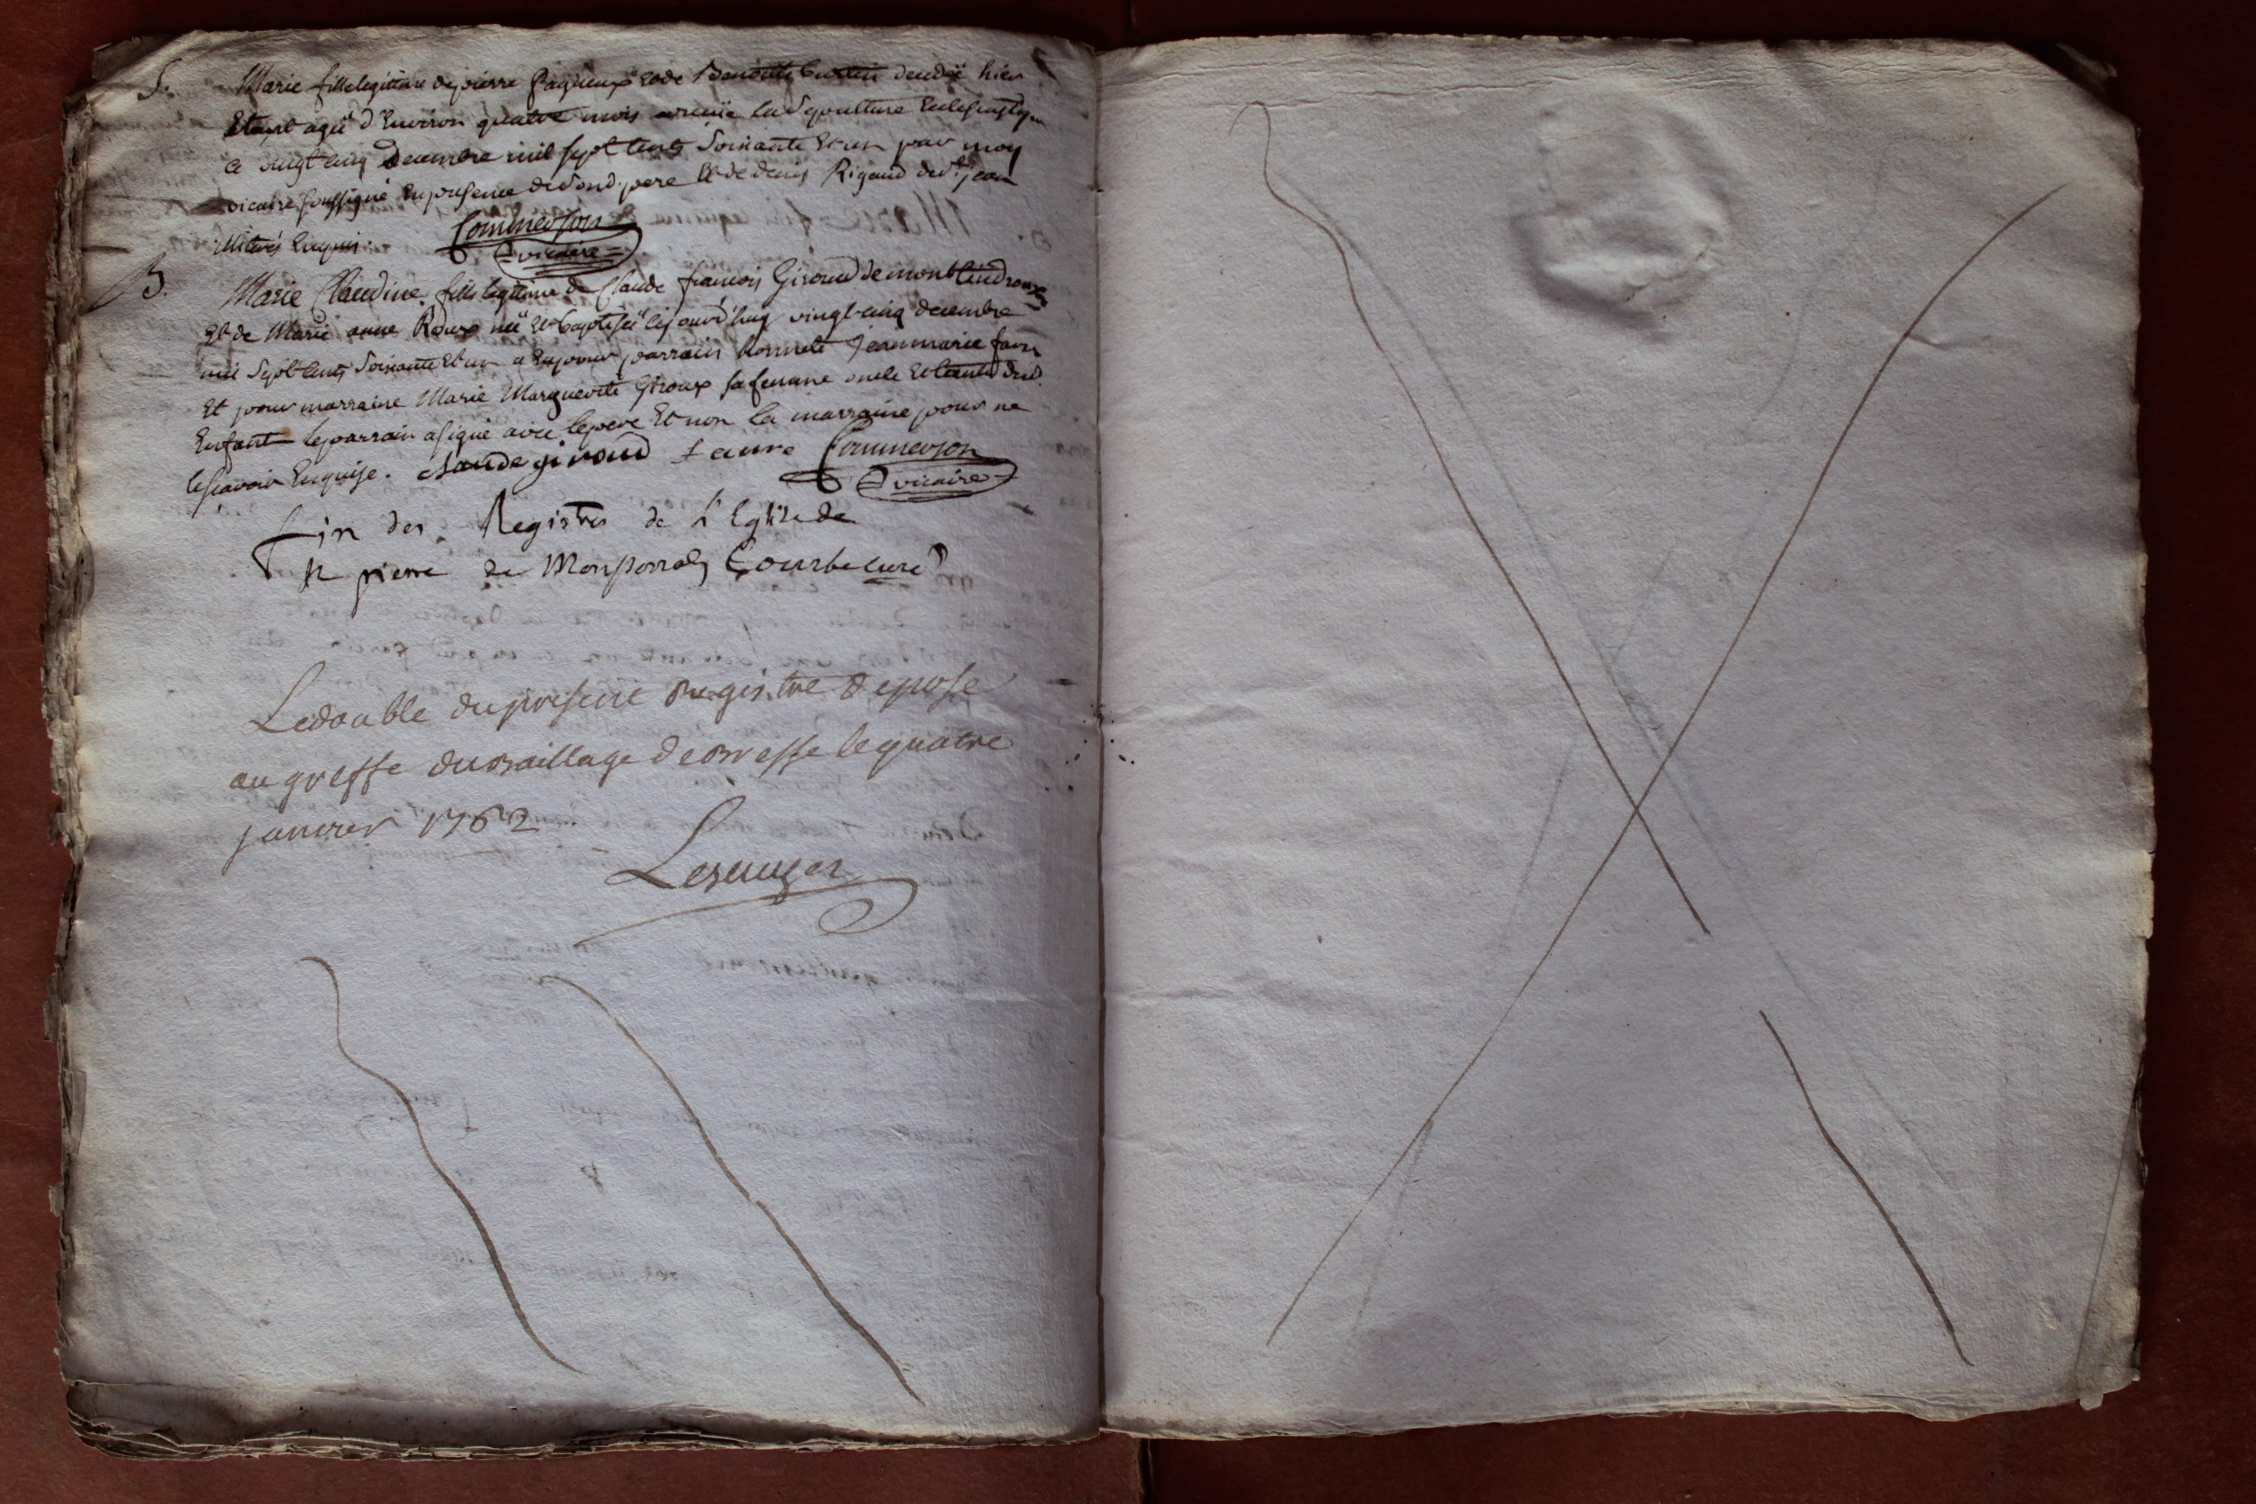 S. Marie fille legitime de pierre Pagneux et de Benoite Curtin decedée hier
Etant agée d'Environ quatre mois a reçue la Sepulture Ecclesiastique
ce vingt cinq Decembre mil sept cents Soixante Et un par moy
vicaire soussigné En presence dud. pere Et de denis Rigaud de St jean
illiterés Enquis. Commerson
vicaire
B. Marie Claudine fille legitime de Claude francois Giroud de mont
Et de Marie anne Roux née Et baptisée ce jourd'huy vingt cinq decembre
mil Sept cents Soixante Et un a Eu pour parrain honnete Jean marie faure
Et pour marraine Marie Marguerite Giroux sa femme oncle Et tante dud.
Enfant le parrain a signé avec le pere Et non la marraine pour ne
le scavoir Enquise. claude giroud faure Commerson
vicaire
fin des Registres de l'Eglise de
St pierre de Courbe curé
Le double du present Registre deposé
au greffe du Baillage de Bresse le quatre
janvier 1762